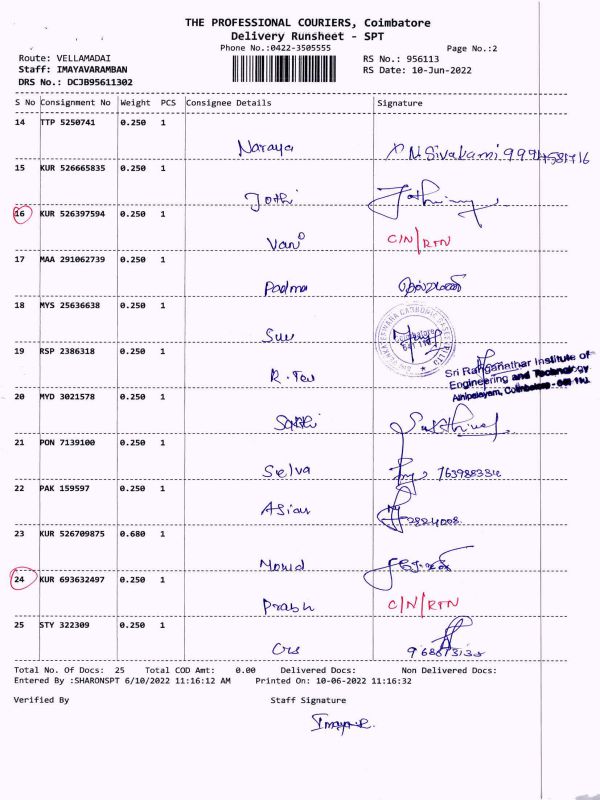 THE PROFESSIONAL COURIERS, Coimbatore
Delivery Runsheet - SPT
Phone No.:0422-3505555 Page No.:2
Route: VELLAMADAI RS No.: 956113
Staff: IMAYAVARAMBAN RS Date: 10-Jun-2022
DRS No.: DCJB95611302
S No Consignment No Weight PCS Consignee Details Signature
14 TTP 5250741 0.250 1
Naraya N.Sivakami
15 KUR 526665835 0.250 1
Jothi
16 KUR 526397594 0.250 1
Vani C/N/RTN
17 MAA 291062739 0.250 1
Padma
18 MYS 25636638 0.250 1
Coimbatore
19 RSP 2386318 0.250 1
Sri Ranganathar Institute of
Engineering and Technology
Athipalayam, Coimbatore - 641 110.
20 MYD 3021578 0.250 1
Sakthi
21 PON 7139100 0.250 1
Selva
22 PAK 159597 0.250 1
23 KUR 526709875 0.680 1
24 KUR 693632497 0.250 1
Prabh C/N/RTN
25 STY 322309 0.250 1
Total No. Of Docs: 25 Total COD Amt: 0.00 Delivered Docs: Non Delivered Docs:
Entered By :SHARONSPT 6/10/2022 11:16:12 AM Printed On: 10-06-2022 11:16:32
Verified By Staff Signature